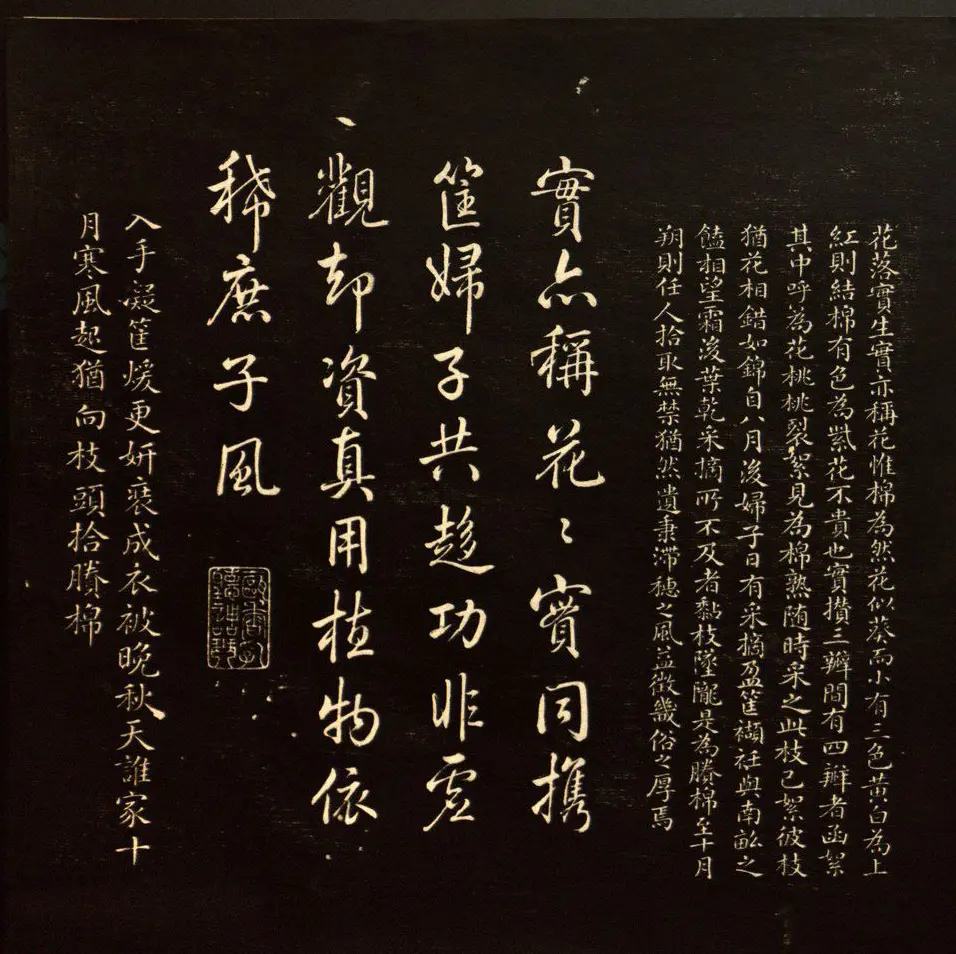 花落實生實亦稱花惟棉為然花似葵而小有三色黃白為上
紅則結棉有色為紫花不貴也實攢三瓣間有四瓣者函絮
其中呼為花桃桃裂絮見為棉熟随時采之此枝已絮彼枝
猶花相錯如錦自八月後婦子日有采摘盈筐襭衽與南畝之
饁相望霜後葉乾采摘所不及者黏枝墜隴是為賸棉至十月
朔則任人拾取無禁猶然遺秉滯穗之風益徵畿俗之厚焉
實亦稱花〻實同攜
筐婦子共趍功非虛
觀却資真用植物依
稀庶子風
入手凝筐煖更妍裒成衣被晚秋天誰家十
月寒風起猶向枝頭拾賸棉